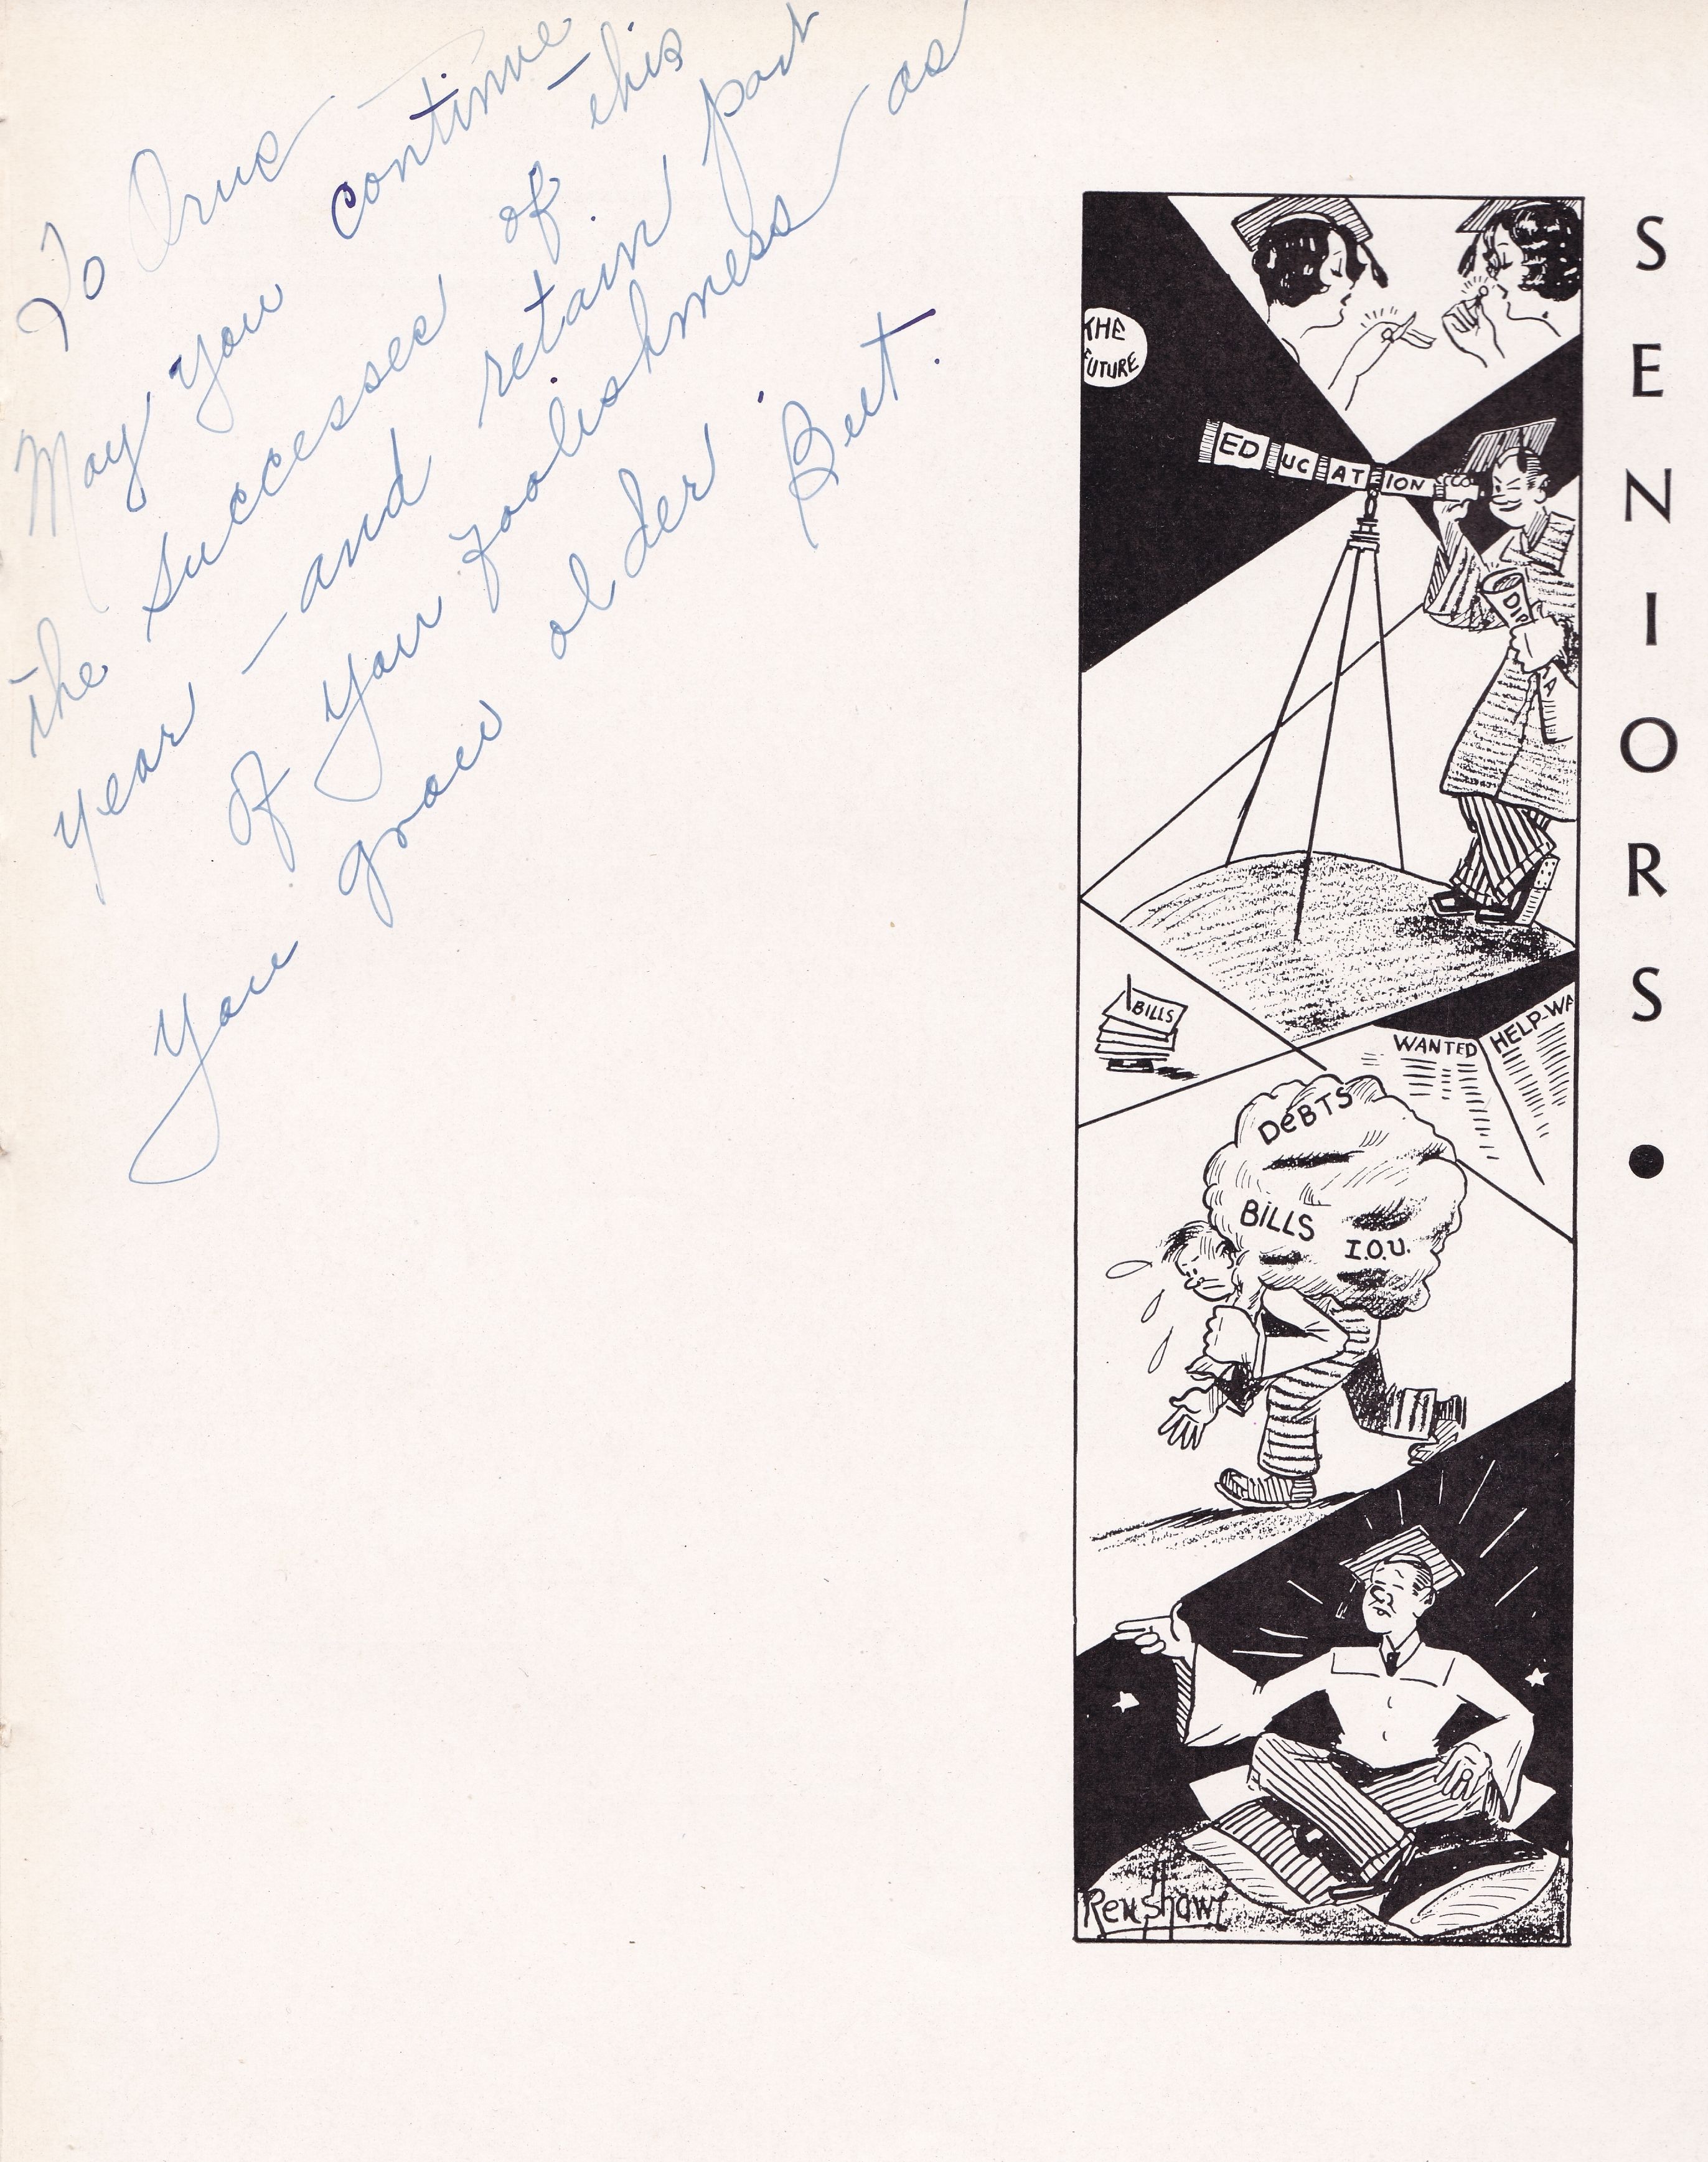 To
May you continue —
the successes of this
year — and retain part
of your foolishness as
you grow older.
Bert.
SENIORS
THE
FUTURE
EDUCATION
DIP
A
BILLS
WANTED
HELP-WA
DeBTS
BiLLS
I.O.U.
Renshaw